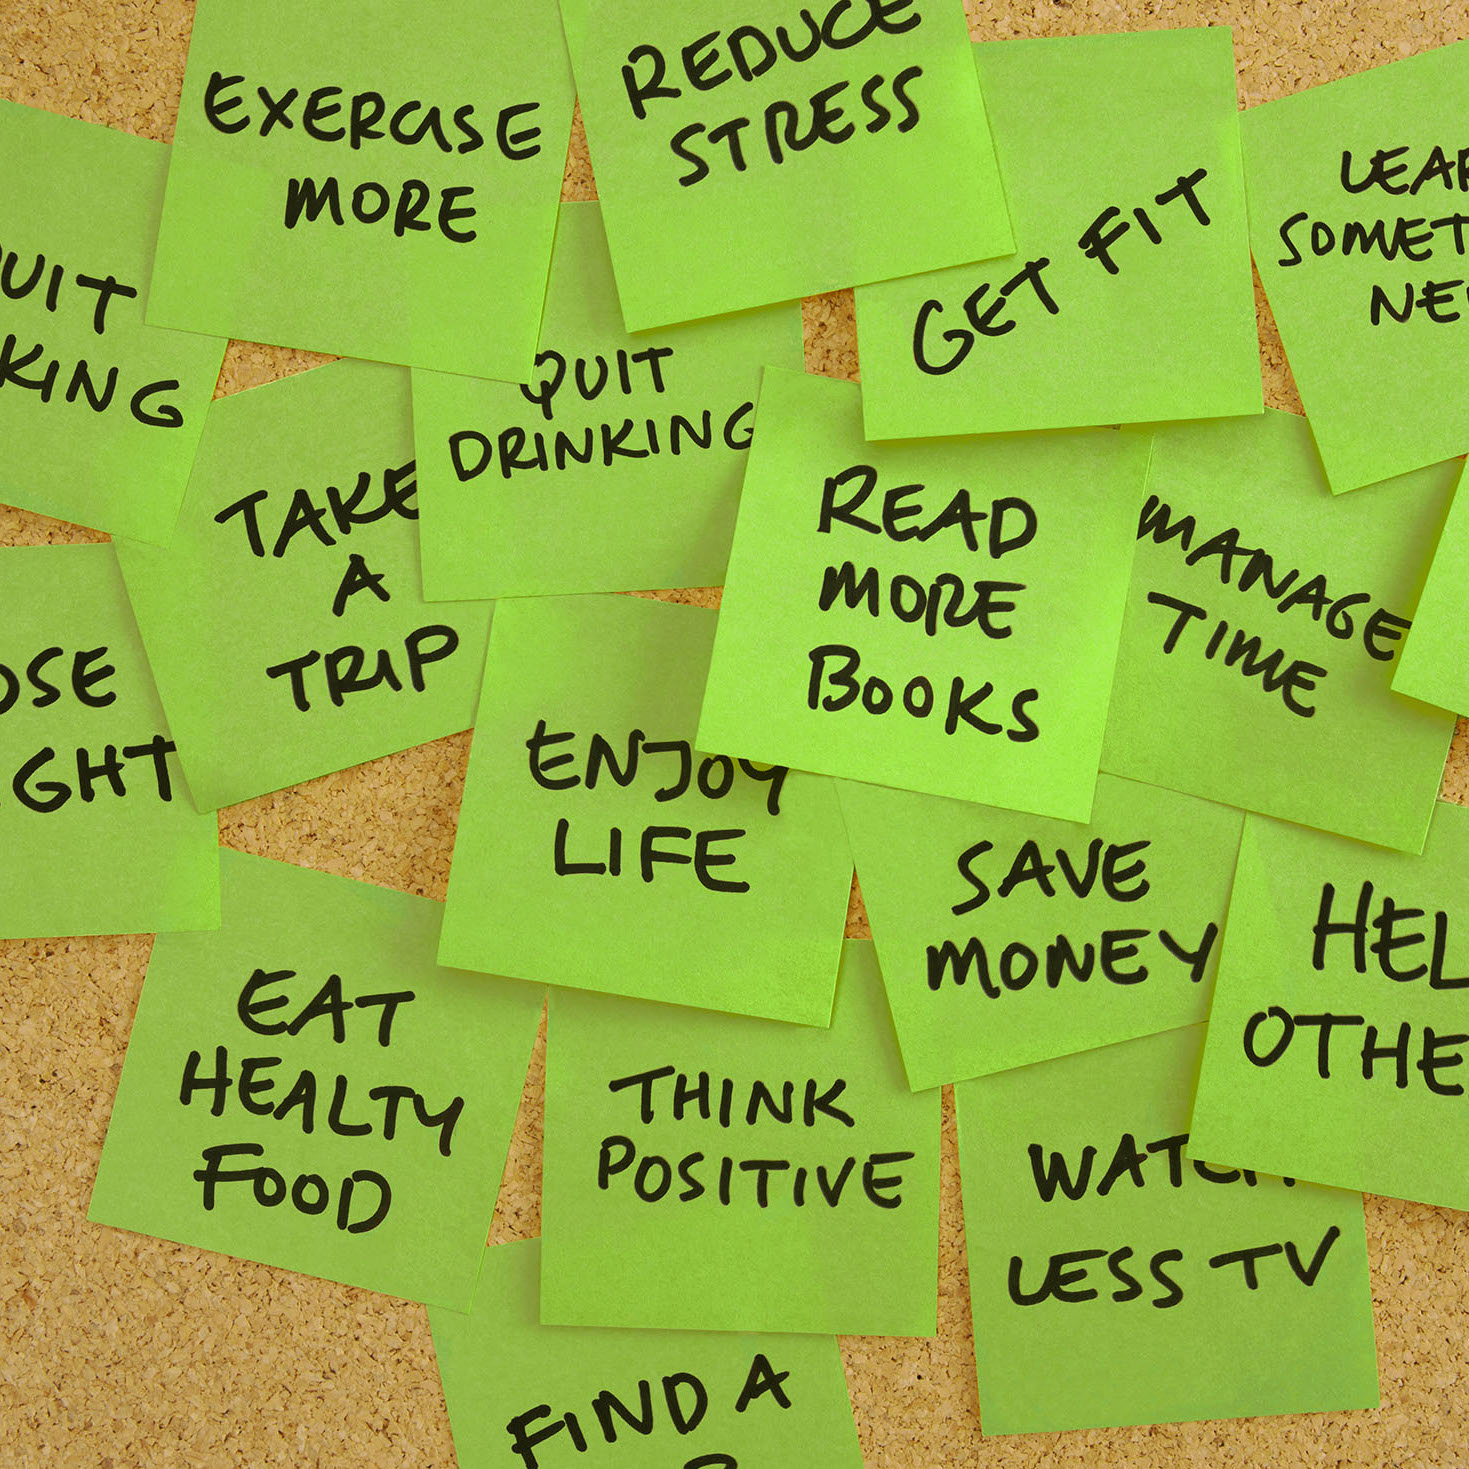 EXERCISE
MORE
REDUCE
STRESS
GET FIT
LEAR
SOMET
NE
UIT
KING
QUIT
DRINKING
TAKE
A
TRIP
READ
MORE
BOOKS
MANAGE
TIME
OSE
GHT
ENJOY
LIFE
SAVE
MONEY
HEL
OTHE
EAT
HEALTY
FOOD
THINK
POSITIVE
WATCH
LESS TV
FIND A